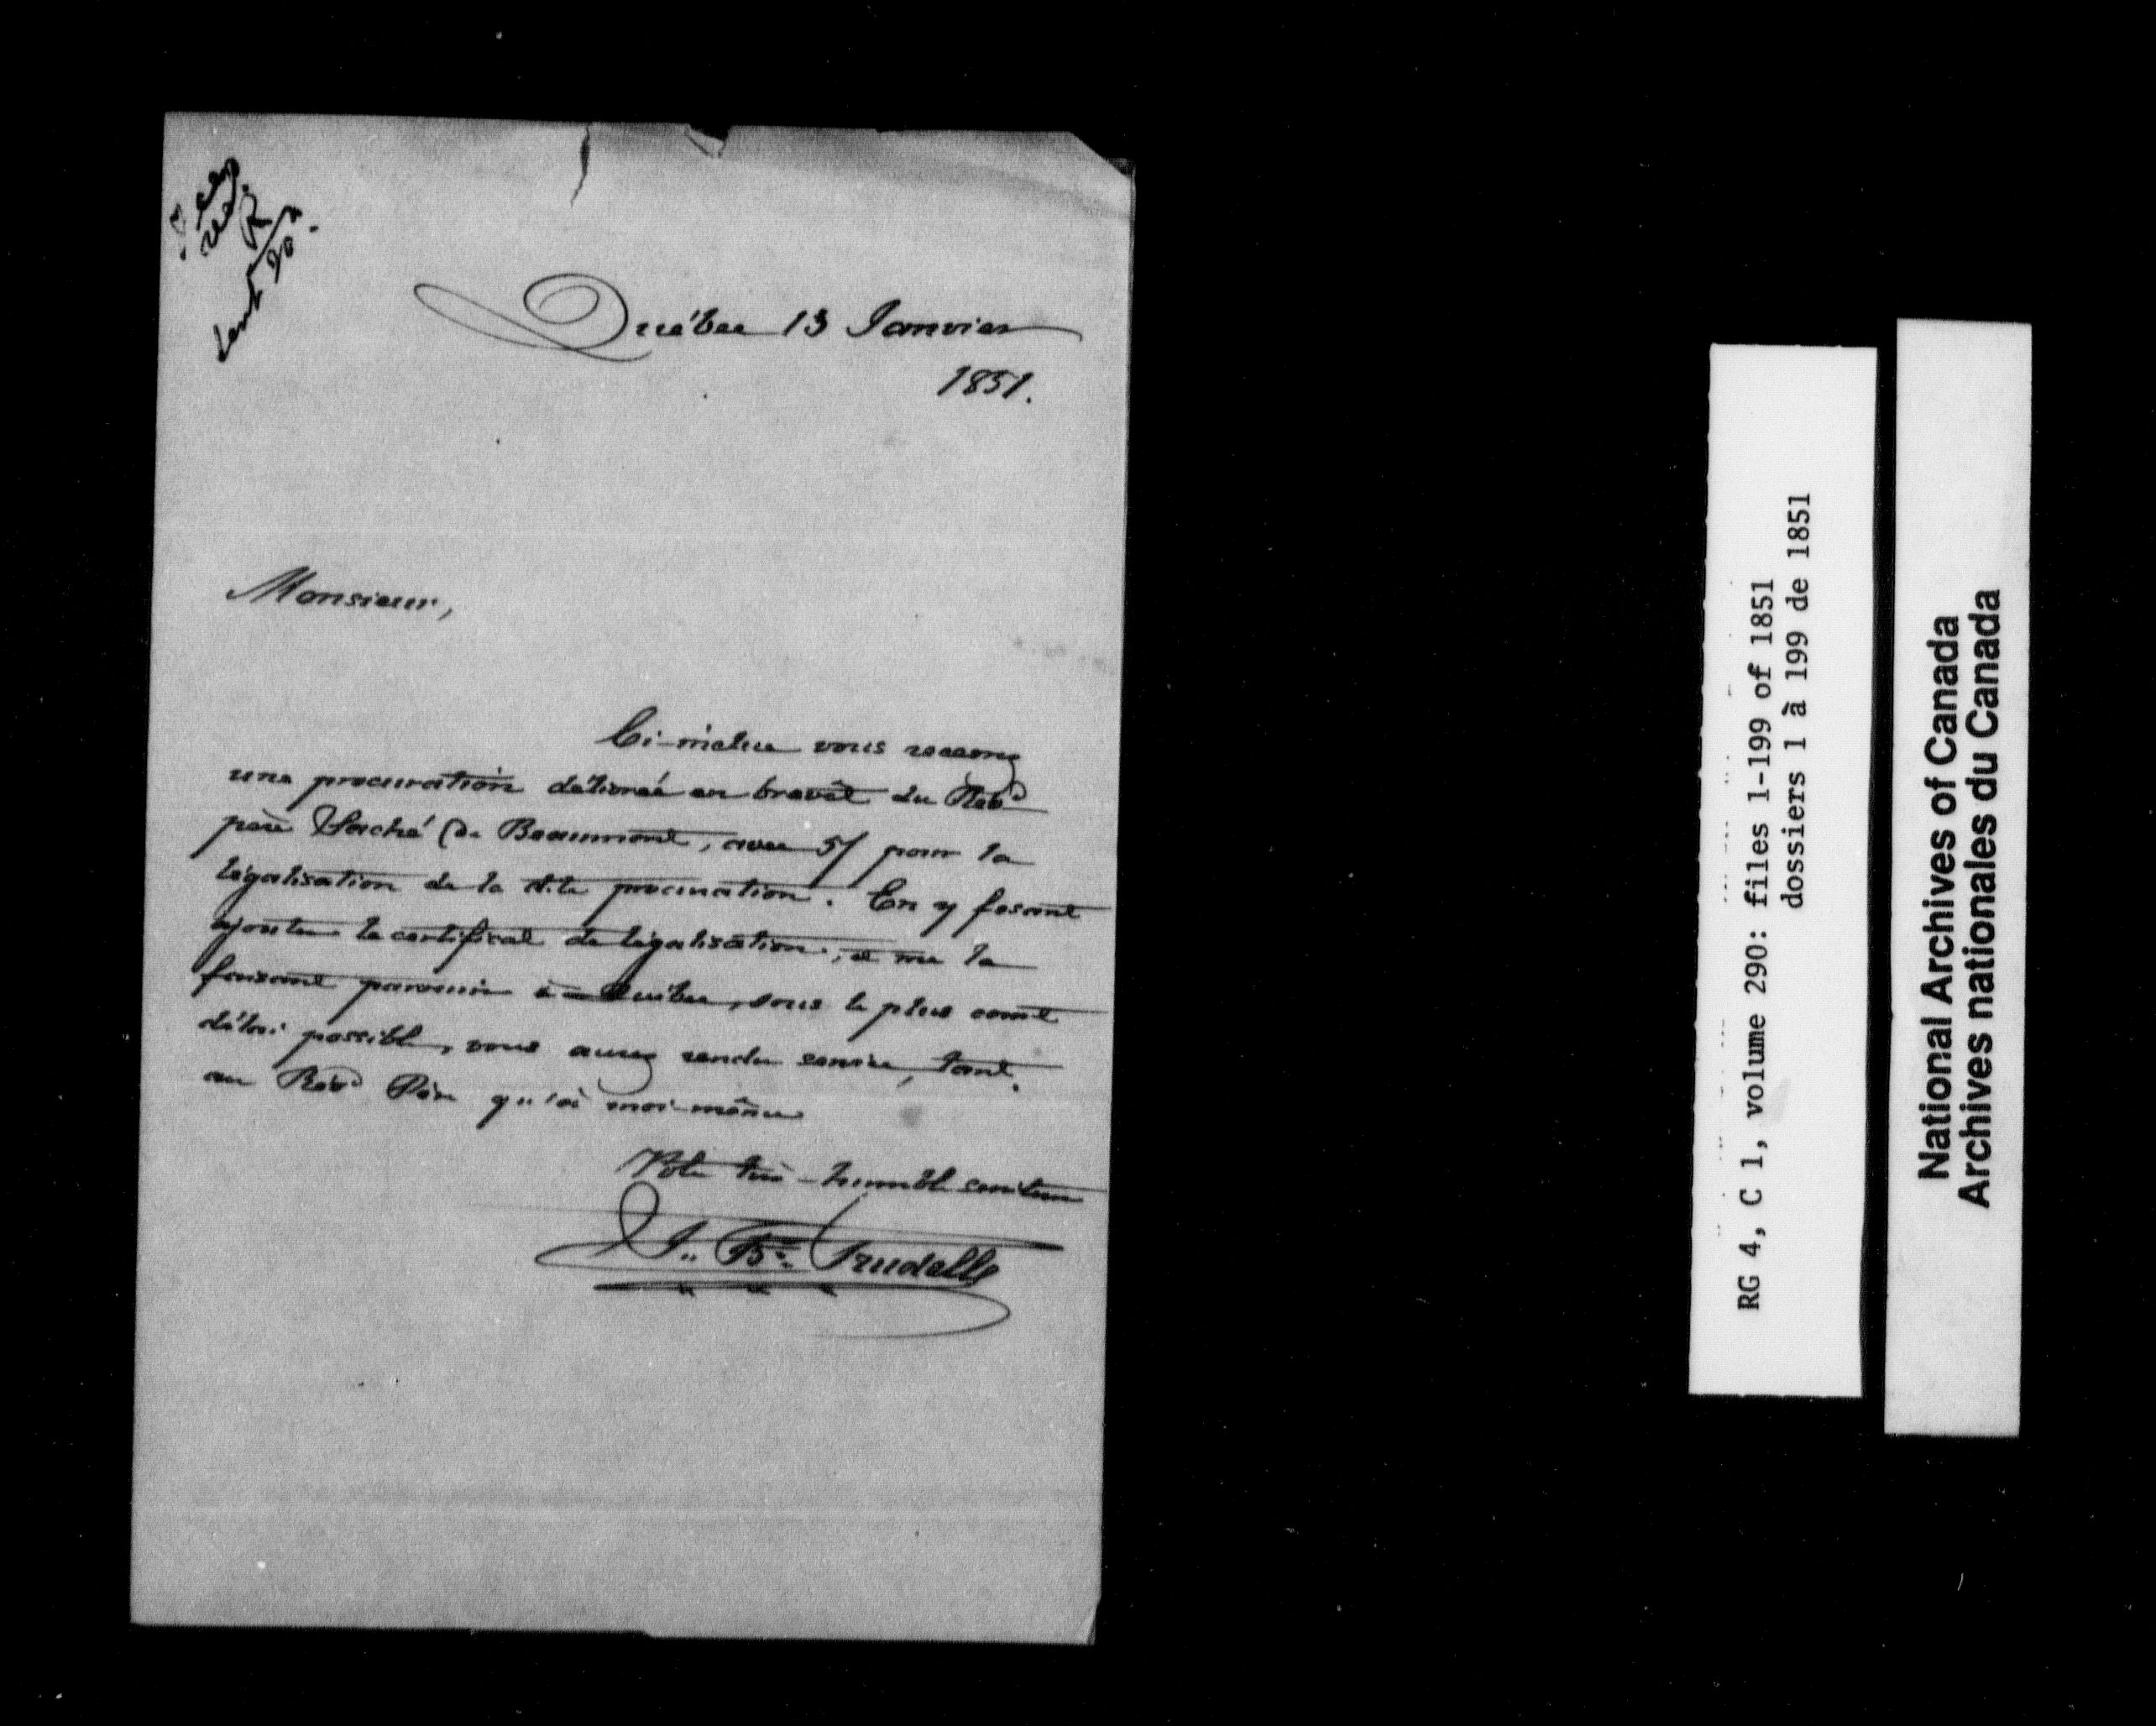 Sent 20
Québec 13 Janvier
1851.
Monsieur,
Ci-inclue vous recevrez
une procuration délivrée en brevêt du Revd
père Taché de Beaumont, avec 5/ pour la
légalisation de la dite procuration. En y fesant
ajouter le certificat de légalisation, et me la
faisant parvenir à Québec, sous le plus court
délai possible, vous aurez rendu service, tant
au Révd Père qu'à moi-même
Votre très-humble serviteur
J. Bte. Trudelle
RG 4, C 1, volume 290: files 1-199 of 1851
dossiers 1 à 199 de 1851
National Archives of Canada
Archives nationales du Canada